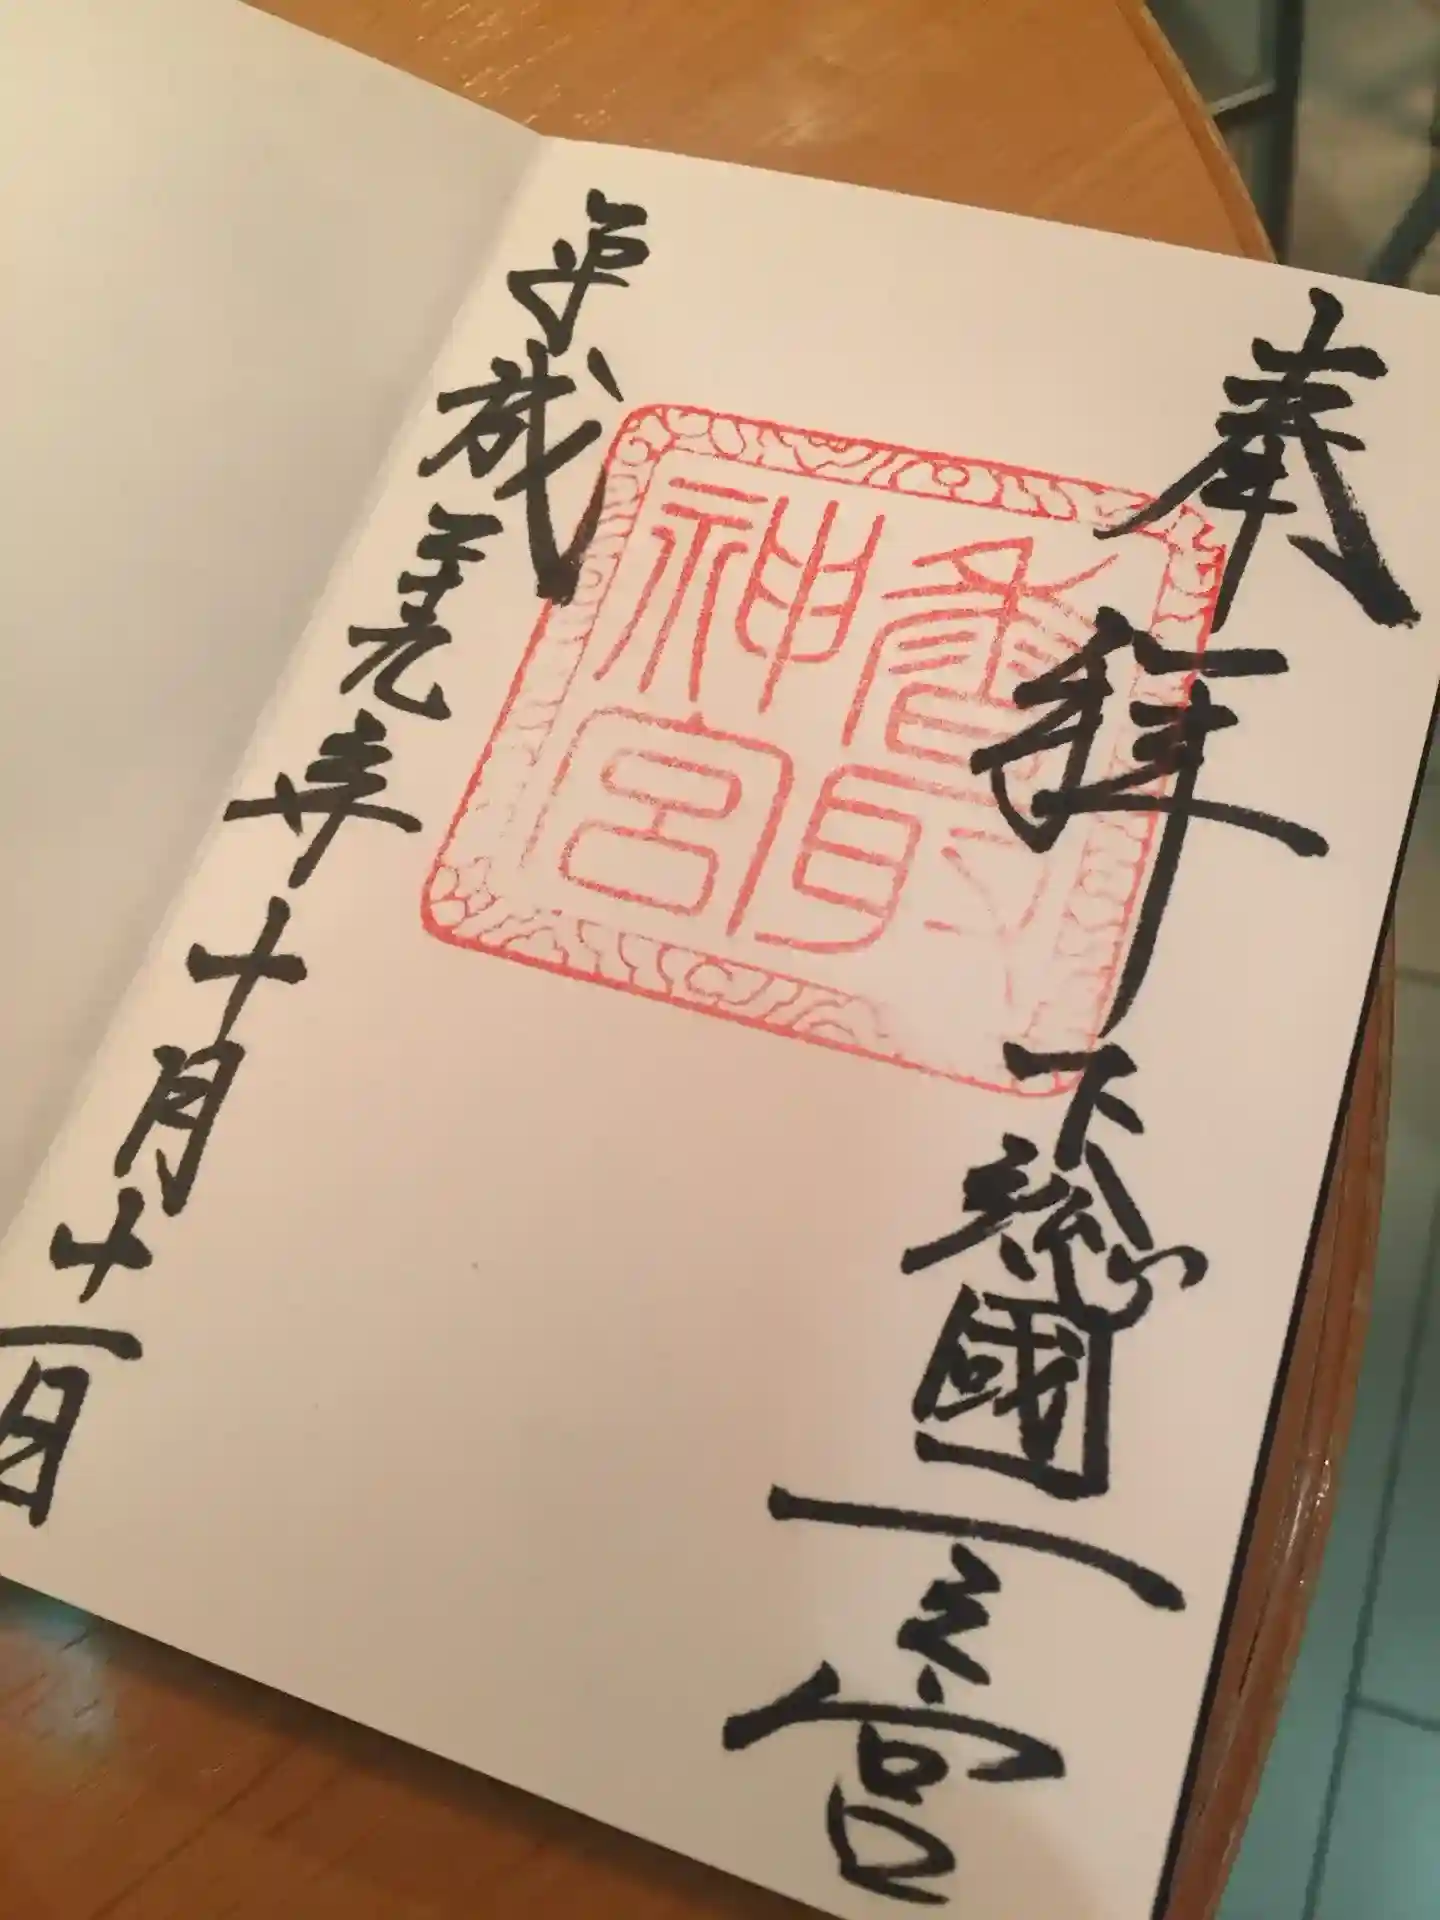 奉拝 下総國一之宮
香取
神宮
平成二十九年十月十一日